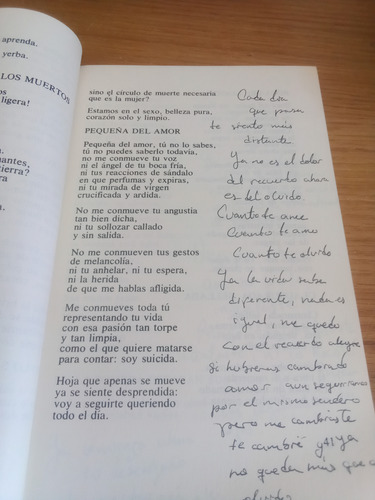 aprenda.
yerba.
LOS MUERTOS
os
ligera!
a.
antes,
tierra?
era
sino el círculo de muerte necesaria
que es la mujer?
Estamos en el sexo, belleza pura,
corazón solo y limpio.
PEQUEÑA DEL AMOR
Pequeña del amor, tú no lo sabes,
tú no puedes saberlo todavía,
no me conmueve tu voz
ni el ángel de tu boca fría,
ni tus reacciones de sándalo
en que perfumas y expiras,
ni tu mirada de virgen
crucificada y ardida.
No me conmueve tu angustia
tan bien dicha,
ni tu sollozar callado
y sin salida.
No me conmueven tus gestos
de melancolía,
ni tu anhelar, ni tu espera,
ni la herida
de que me hablas afligida.
Me conmueves toda tú
representando tu vida
con esa pasión tan torpe
y tan limpia,
como el que quiere matarse
para contar: soy suicida.
Hoja que apenas se mueve
ya se siente desprendida:
voy a seguirte queriendo
todo el día.
Cada día
que pasa
te siento más
distante
Ya no es el dolor
del recuerdo ahora
es el olvido
Cuanto te amé
Cuanto te amo
Cuanto te olvido
Ya la vida sabe
diferente, nada es
igual, me quedo
con el recuerdo alegre
si hubieras cambiado
amor aun seguiríamos
por el mismo sendero
pero me cambiaste
te cambié y ya
no quedan más que